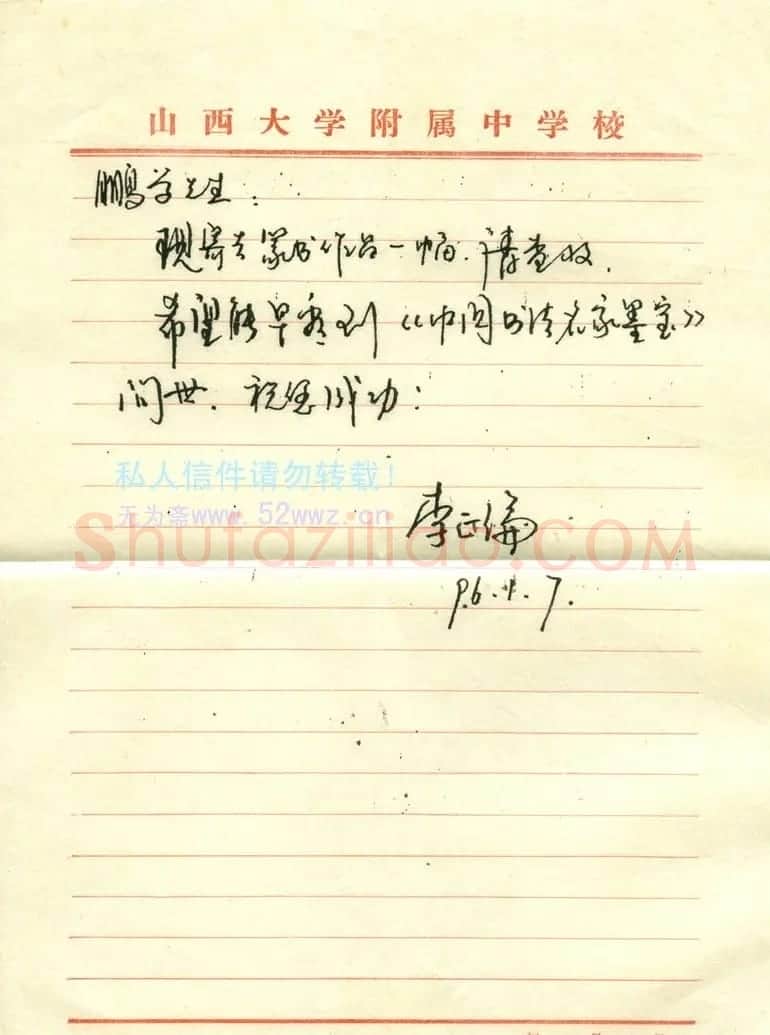 山西大学附属中学校
鹏字先生:
现寄去篆书作品一幅.请查收.
希望能早看到《中国书法名家墨宝》
问世.祝您成功:
私人信件请勿转载!
无为斋www.52wwz.cn
Shufaziliao.COM
李正
96.4.7.